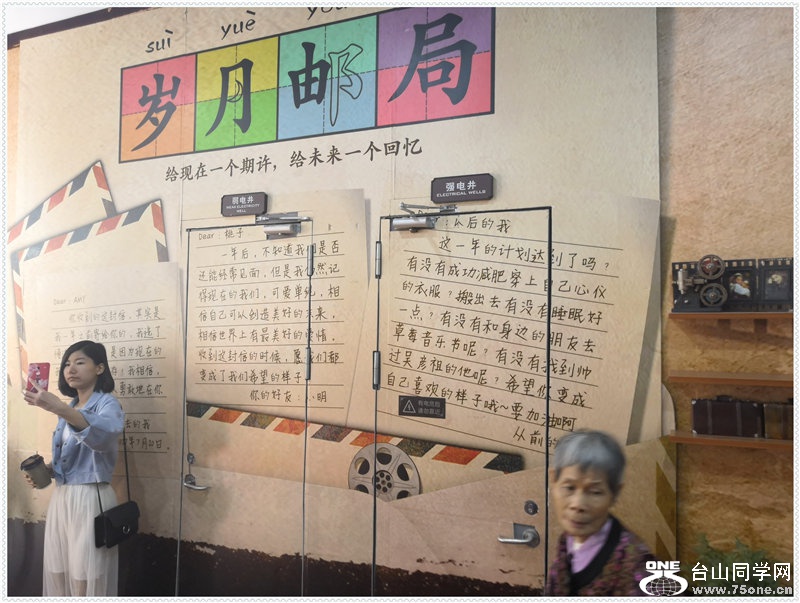 suì yuè
岁月邮局
给现在一个期许，给未来一个回忆
弱电井
WEAK ELECTRICITY WELL
强电井
ELECTRICAL WELLS
Dear：AMY
你收到的这封信，其实是
我一年之前寄给你的，我选了
是因为现在的
我相信，
勇敢地在你
去的我
Dear：桃子
一年后，不知道我们是否
还能经常见面，但是我仍然记
得现在的我们，可爱单纯，相
信自己可以创造美好的未来，
相信世界上有最美好的爱情，
收到这封信的时候，愿我们都
变成了我们希望的样子
你的好友：小明
：以后的我
这一年的计划达到了吗？
有没有成功减肥穿上自己心仪
的衣服？搬出去有没有睡眠好
一点？有没有和身边的朋友去
草莓音乐节呢？有没有找到帅
过吴彦祖的他呢？希望你变成
自己喜欢的样子哦~要加油啊
从前的
有电危险
请勿靠近
ONE 台山同学网
www.75one.cn